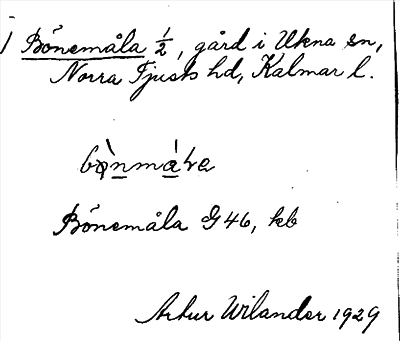 Bönemåla ½, gård i Ukna sn,
Norra Tjusts hd, Kalmar l.
Bönemåla G 46, kb
Arhur Wilander 1929